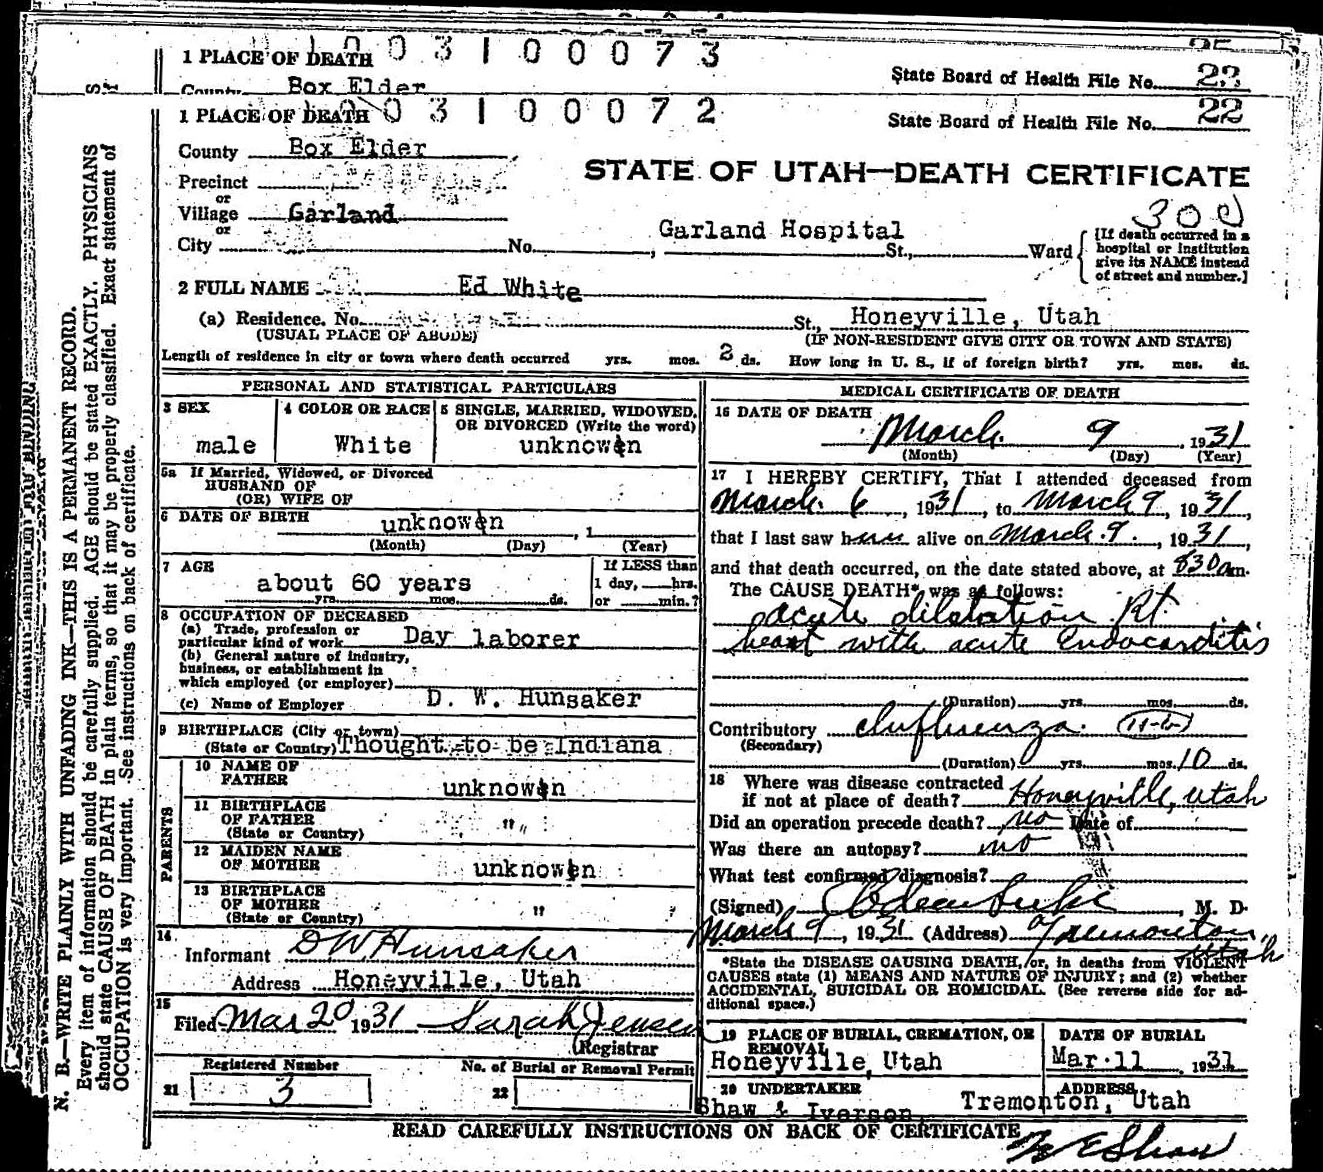 1 PLACE OF DEATH 1 0 0 3 1 0 0 0 7 3
State Board of Health File No. 23
County Box Elder
1 PLACE OF DEATH 1 0 0 3 1 0 0 0 7 2
State Board of Health File No. 22
County Box Elder
STATE OF UTAH—DEATH CERTIFICATE
Precinct
or
Village Garland
300
or
City No. Garland Hospital St., Ward
[If death occurred in a
hospital or institution
give its NAME instead
of street and number.]
2 FULL NAME Ed White
(a) Residence. No. St., Honeyville, Utah
(USUAL PLACE OF ABODE) (IF NON-RESIDENT GIVE CITY OR TOWN AND STATE)
Length of residence in city or town where death occurred yrs. mos. 3 ds. How long in U. S., if of foreign birth? yrs. mos. ds.
PERSONAL AND STATISTICAL PARTICULARS
3 SEX
male
4 COLOR OR RACE
White
5 SINGLE, MARRIED, WIDOWED,
OR DIVORCED (Write the word)
unknowen
5a If Married, Widowed, or Divorced
HUSBAND OF
(OR) WIFE OF
6 DATE OF BIRTH unknowen , 1
(Month) (Day) (Year)
7 AGE
about 60 years
yrs. mos. ds.
If LESS than
1 day, hrs.
or min.?
8 OCCUPATION OF DECEASED
(a) Trade, profession or
particular kind of work Day laborer
(b) General nature of industry,
business, or establishment in
which employed (or employer)
(c) Name of Employer D. W. Hunsaker
9 BIRTHPLACE (City or town)
(State or Country) Thought to be Indiana
PARENTS
10 NAME OF
FATHER unknowen
11 BIRTHPLACE
OF FATHER "
(State or Country)
12 MAIDEN NAME
OF MOTHER unknowen
13 BIRTHPLACE
OF MOTHER "
(State or Country)
14
Informant D W Hunsaker
Address Honeyville, Utah
15
Filed Mar 20 1931 Sarah Jensen
Registrar
Registered Number
21 3
No. of Burial or Removal Permit
22
MEDICAL CERTIFICATE OF DEATH
16 DATE OF DEATH
March 9 , 1931
(Month) (Day) (Year)
17 I HEREBY CERTIFY, That I attended deceased from
March 6 , 1931, to March 9, 1931,
that I last saw him alive on March 9. , 1931,
and that death occurred, on the date stated above, at 830 am.
The CAUSE DEATH* was as follows:
acute dilatation Rt
heart with acute Endocarditis
(Duration) yrs. mos. ds.
Contributory Influenza.
(Secondary)
(Duration) yrs. mos. 10 ds.
18 Where was disease contracted
if not at place of death? Honeyville, Utah
Did an operation precede death? no Date of
Was there an autopsy? no
What test confirmed diagnosis?
(Signed) , M. D.
March 9, 1931 (Address) Tremonton, Utah
*State the DISEASE CAUSING DEATH, or, in deaths from VIOLENT
CAUSES state (1) MEANS AND NATURE OF INJURY; and (2) whether
ACCIDENTAL, SUICIDAL OR HOMICIDAL. (See reverse side for ad-
ditional space.)
19 PLACE OF BURIAL, CREMATION, OR
REMOVAL
Honeyville, Utah
DATE OF BURIAL
Mar. 11 , 1931
20 UNDERTAKER
Shaw & Iverson,
ADDRESS
Tremonton, Utah
READ CAREFULLY INSTRUCTIONS ON BACK OF CERTIFICATE
W E Shaw
N. B.—WRITE PLAINLY WITH UNFADING INK—THIS IS A PERMANENT RECORD.
Every item of information should be carefully supplied. AGE should be stated EXACTLY. PHYSICIANS
should state CAUSE OF DEATH in plain terms, so that it may be properly classified. Exact statement of
OCCUPATION is very important. See instructions on back of certificate.